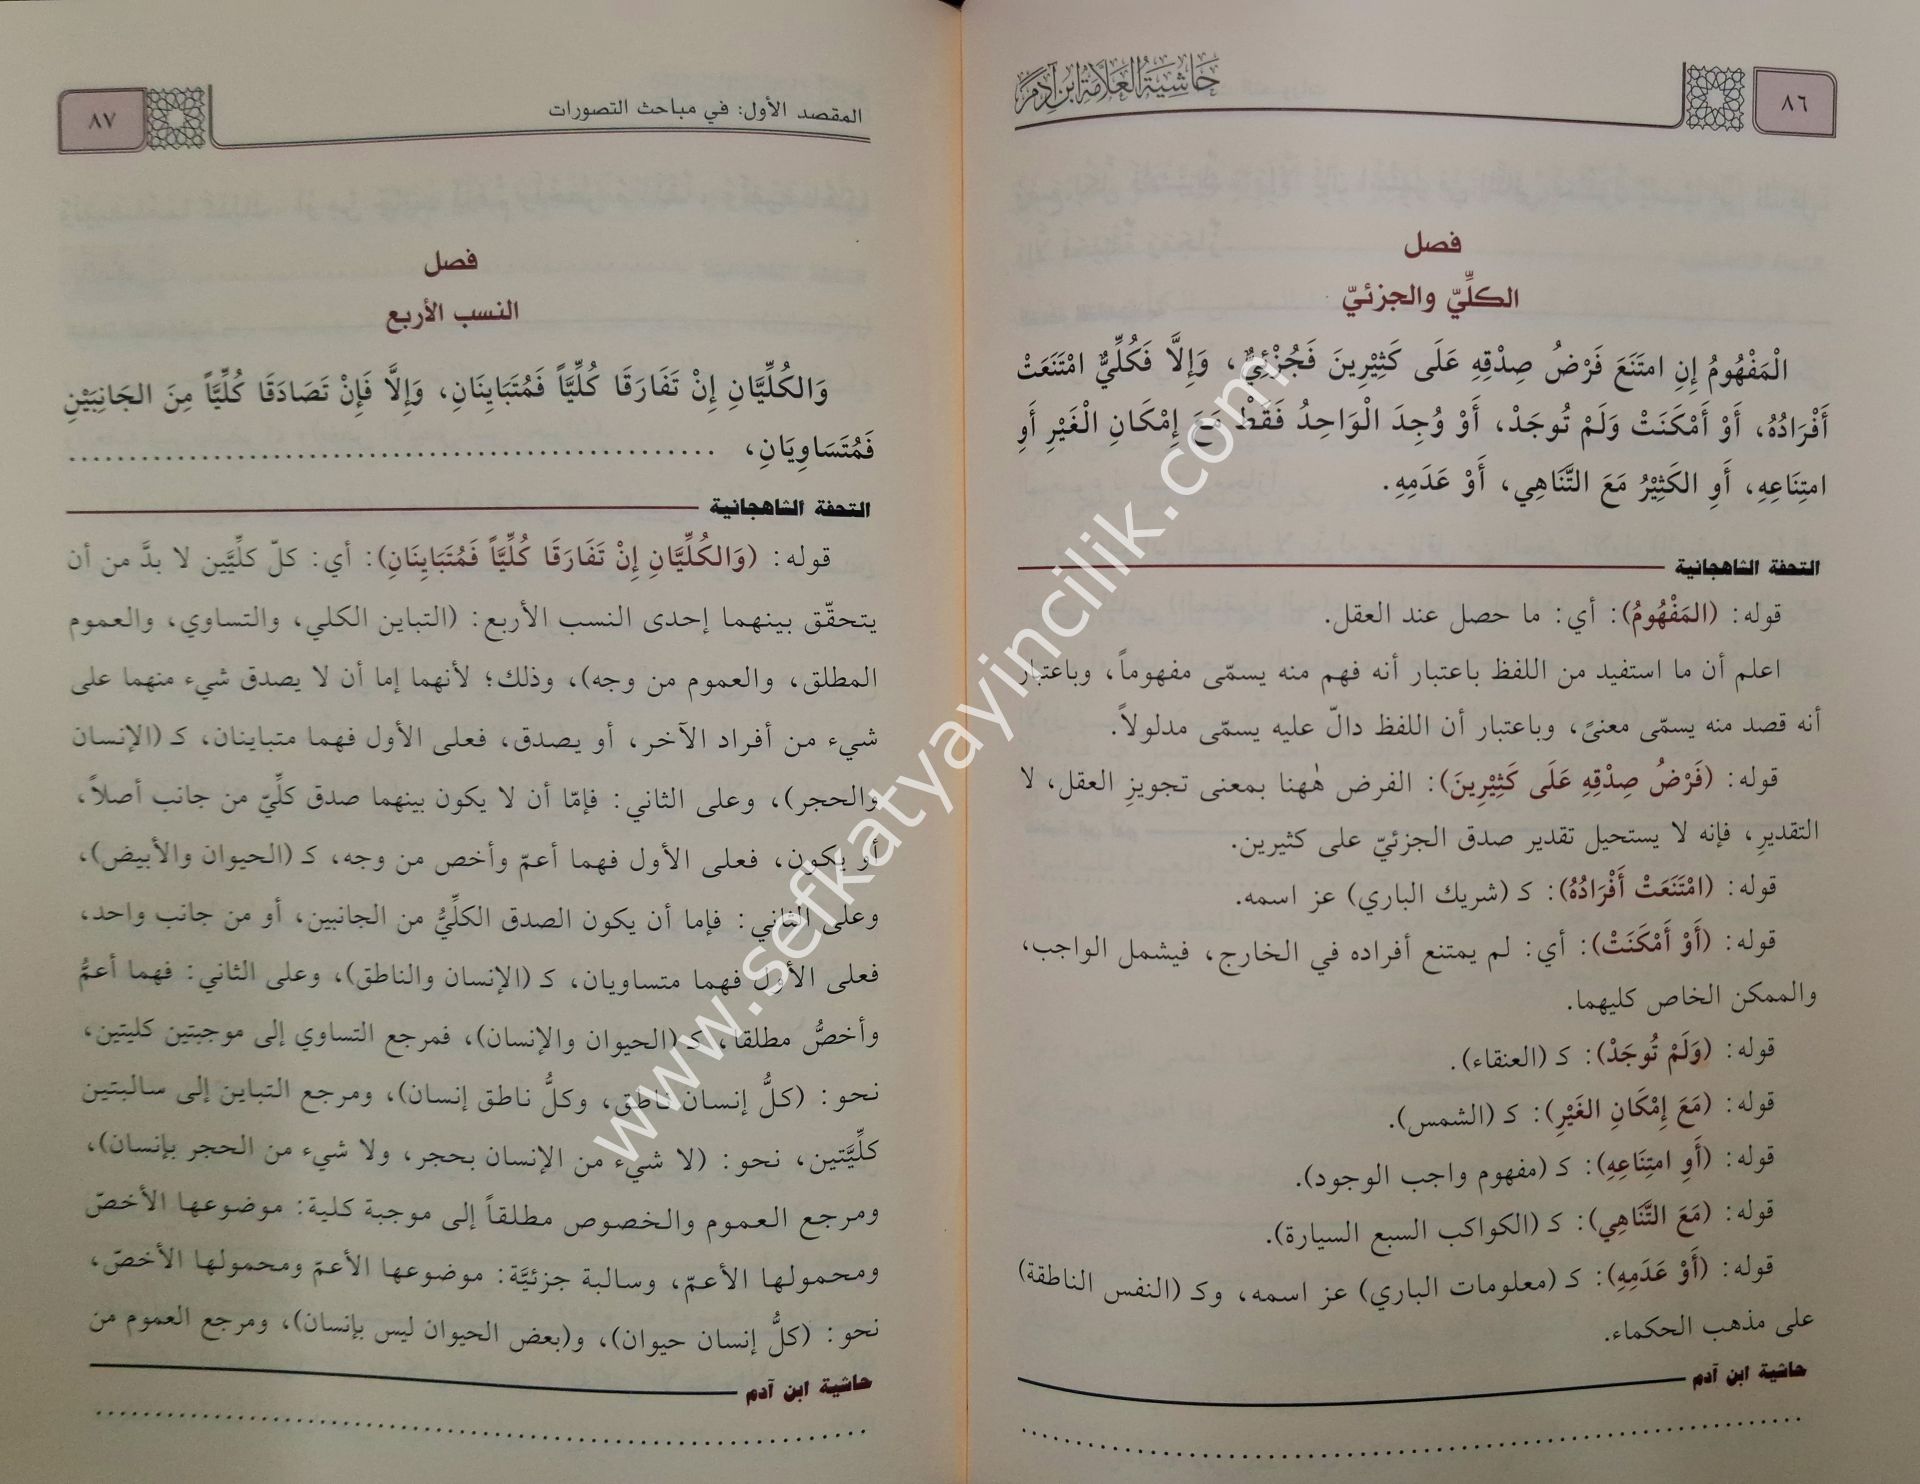 ٨٦
حَاشِيَةُ العَلَّامَةِ ابْنِ آدَمَ
فصل
الكلِّيّ والجزئيّ
الْمَفْهُومُ إِنِ امتَنَعَ فَرْضُ صِدْقِهِ عَلَى كَثِيْرِينَ فَجُزْئِيٌّ، وَإِلَّا فَكُلِّيٌّ امْتَنَعَتْ
أَفْرَادُهُ، أَوْ أَمْكَنَتْ وَلَمْ تُوجَدْ، أَوْ وُجِدَ الْوَاحِدُ فَقَطْ مَعَ إِمْكَانِ الْغَيْرِ أَوِ
امتِنَاعِهِ، أَوِ الكَثِيْرُ مَعَ التَّنَاهِي، أَوْ عَدَمِهِ.
التحفة الشاهجانية
قوله: (المَفْهُومُ): أي: ما حصل عند العقل.
اعلم أن ما استفيد من اللفظ باعتبار أنه فهم منه يسمّى مفهوماً، وباعتبار
أنه قصد منه يسمّى معنىً، وباعتبار أن اللفظ دالّ عليه يسمّى مدلولاً.
قوله: (فَرْضُ صِدْقِهِ عَلَى كَثِيْرِينَ): الفرض هٰهنا بمعنى تجويزِ العقل، لا
التقديرِ، فإنه لا يستحيل تقدير صدق الجزئيّ على كثيرين.
قوله: (امْتَنَعَتْ أَفْرَادُهُ): كـ (شريك الباري) عز اسمه.
قوله: (أَوْ أَمْكَنَتْ): أي: لم يمتنع أفراده في الخارج، فيشمل الواجب،
والممكن الخاص كليهما.
قوله: (وَلَمْ تُوجَدْ): كـ (العنقاء).
قوله: (مَعَ إِمْكَانِ الغَيْرِ): كـ (الشمس).
قوله: (أَوِ امتِنَاعِهِ): كـ (مفهوم واجب الوجود).
قوله: (مَعَ التَّنَاهِي): كـ (الكواكب السبع السيارة).
قوله: (أَوْ عَدَمِهِ): كـ (معلومات الباري) عز اسمه، وكـ (النفس الناطقة)
على مذهب الحكماء.
حاشية ابن آدم
المقصد الأول: في مباحث التصورات
٨٧
فصل
النسب الأربع
وَالكُلِّيَّانِ إِنْ تَفَارَقَا كُلِّيَّاً فَمُتَبَاينَانِ، وَإِلَّا فَإِنْ تَصَادَقَا كُلِّيَّاً مِنَ الجَانِبَيْنِ
فَمُتَسَاوِيَانِ، ........................................
التحفة الشاهجانية
قوله: (وَالكُلِّيَّانِ إِنْ تَفَارَقَا كُلِّيَّاً فَمُتَبَاينَانِ): أي: كلّ كلِّيَّين لا بدَّ من أن
يتحقّق بينهما إحدى النسب الأربع: (التباين الكلي، والتساوي، والعموم
المطلق، والعموم من وجه)، وذلك؛ لأنهما إما أن لا يصدق شيء منهما على
شيء من أفراد الآخر، أو يصدق، فعلى الأول فهما متباينان، كـ (الإنسان
والحجر)، وعلى الثاني: فإمّا أن لا يكون بينهما صدق كلِّيّ من جانب أصلاً،
أو يكون، فعلى الأول فهما أعمّ وأخص من وجه، كـ (الحيوان والأبيض)،
وعلى الثاني: فإما أن يكون الصدق الكلِّيُّ من الجانبين، أو من جانب واحد،
فعلى الأول فهما متساويان، كـ (الإنسان والناطق)، وعلى الثاني: فهما أعمُّ
وأخصُّ مطلقا، كـ (الحيوان والإنسان)، فمرجع التساوي إلى موجبتين كليتين،
نحو: (كلُّ إنسان ناطق، وكلُّ ناطق إنسان)، ومرجع التباين إلى سالبتين
كلِّيَّتين، نحو: (لا شيء من الإنسان بحجر، ولا شيء من الحجر بإنسان)،
ومرجع العموم والخصوص مطلقاً إلى موجبة كلية: موضوعها الأخصّ
ومحمولها الأعمّ، وسالبة جزئيَّة: موضوعها الأعمّ ومحمولها الأخصّ،
نحو: (كلُّ إنسان حيوان)، و(بعض الحيوان ليس بإنسان)، ومرجع العموم من
حاشية ابن آدم
www.sefkatyayincilik.com